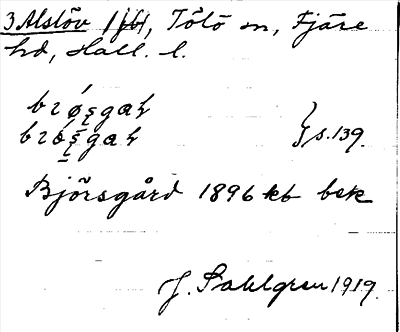 3 Alslöv /jb/, Tölö sn, Fjäre
hd, Hall. l.
brǿʂgaɦ
brǿʂgaɦ } s. 139.
Björsgård 1896 kb bek
J. Sahlgren 1919.